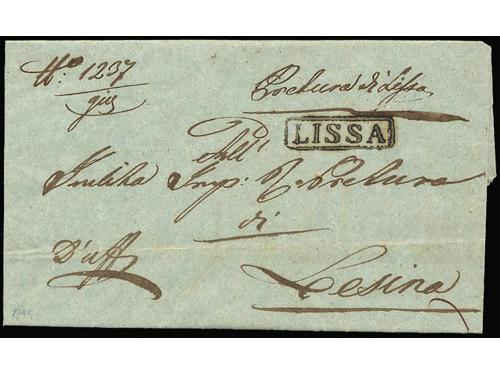 No. 1237
gius
Pretura di Lissa
LISSA
All'
Inclita Imp: R. Pretura
di
D'uff
Lesina